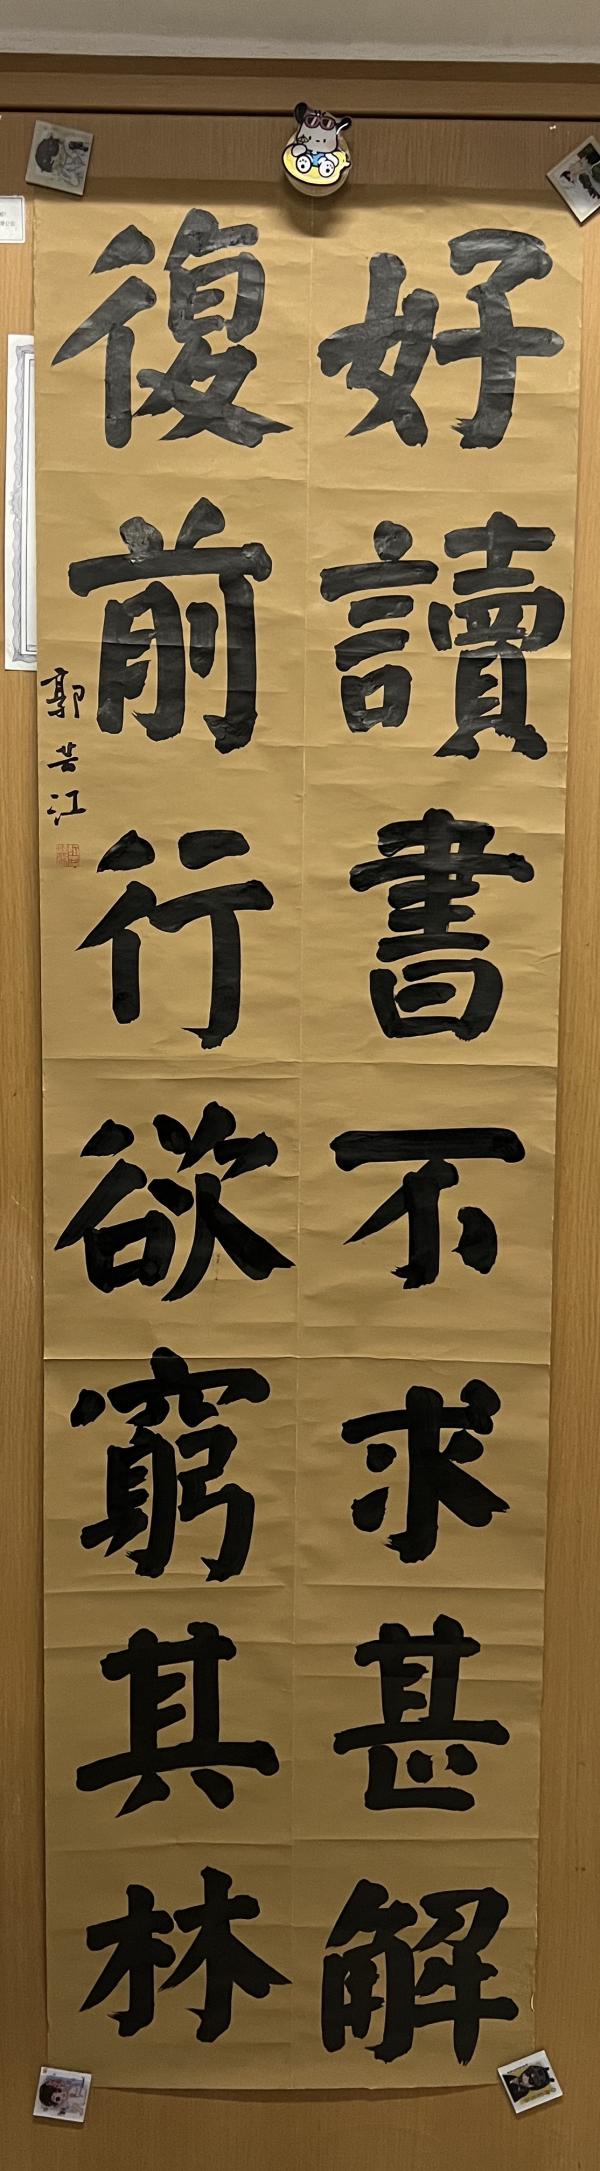 好讀書不求甚解
復前行欲窮其林
郭芸江